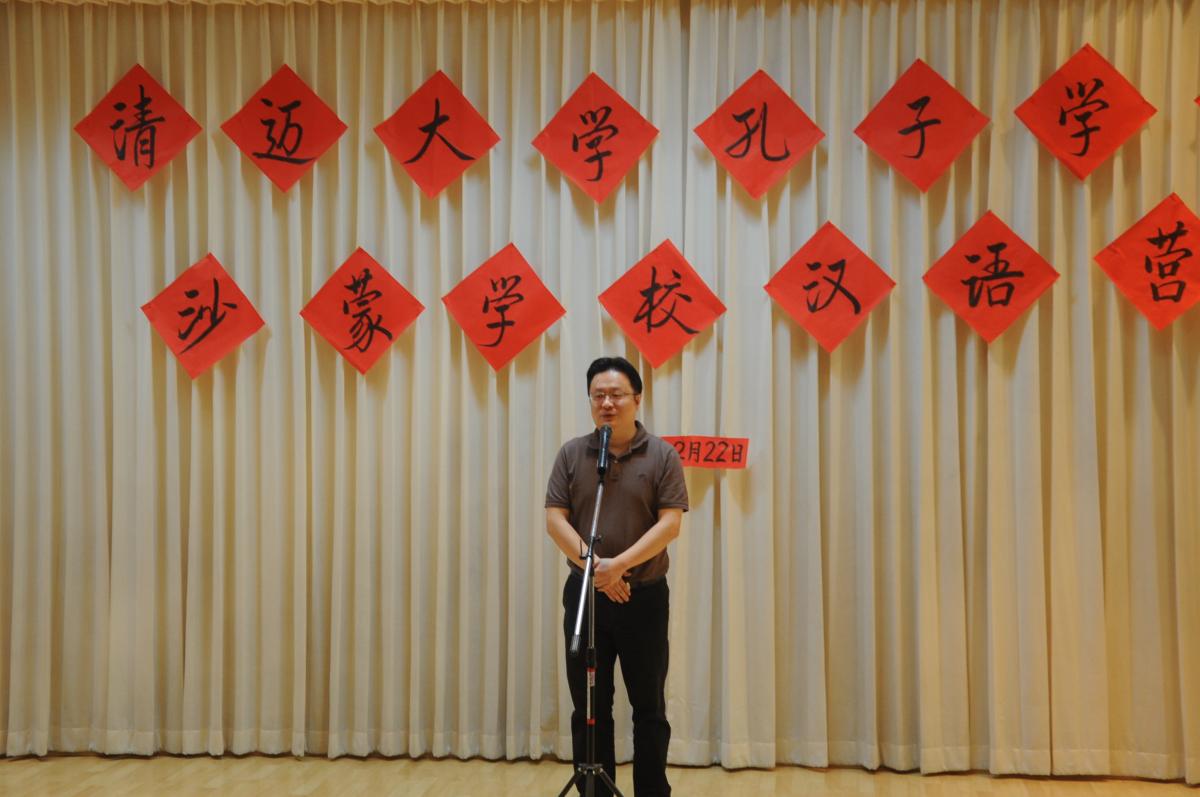 清迈大学孔子学
沙蒙学校汉语营
2月22日